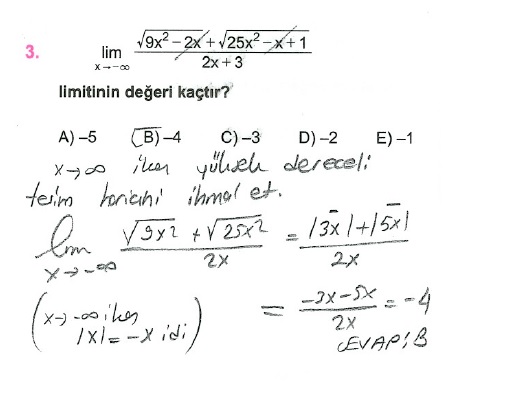 3. lim x→–∞ (√9x² – 2x + √25x² – x + 1) / (2x + 3)
limitinin değeri kaçtır?
A) –5 B) –4 C) –3 D) –2 E) –1
x→∞ iken yüksek dereceli
terim haricini ihmal et.
lim x→–∞ (√9x² + √25x²) / 2x = (|3x| + |5x|) / 2x
(x→–∞ iken |x| = –x idi) = (–3x–5x) / 2x = –4
CEVAP: B